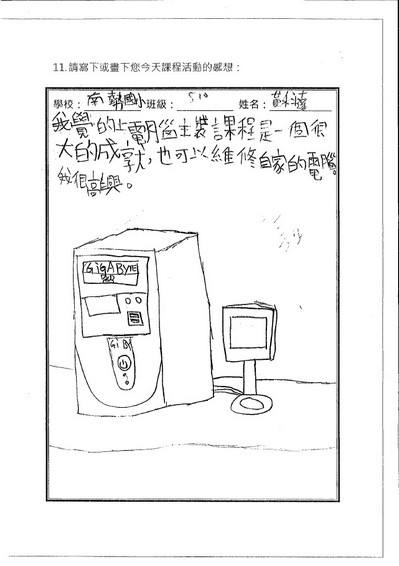 11.請寫下或畫下您今天課程活動的感想：
學校：南勢國小 班級：510 姓名：黃
我覺的上電腦主裝課程是一個很
大的成敦，也可以維修自家的電腦。
我很高興。
GiGABYTE
Gi BY